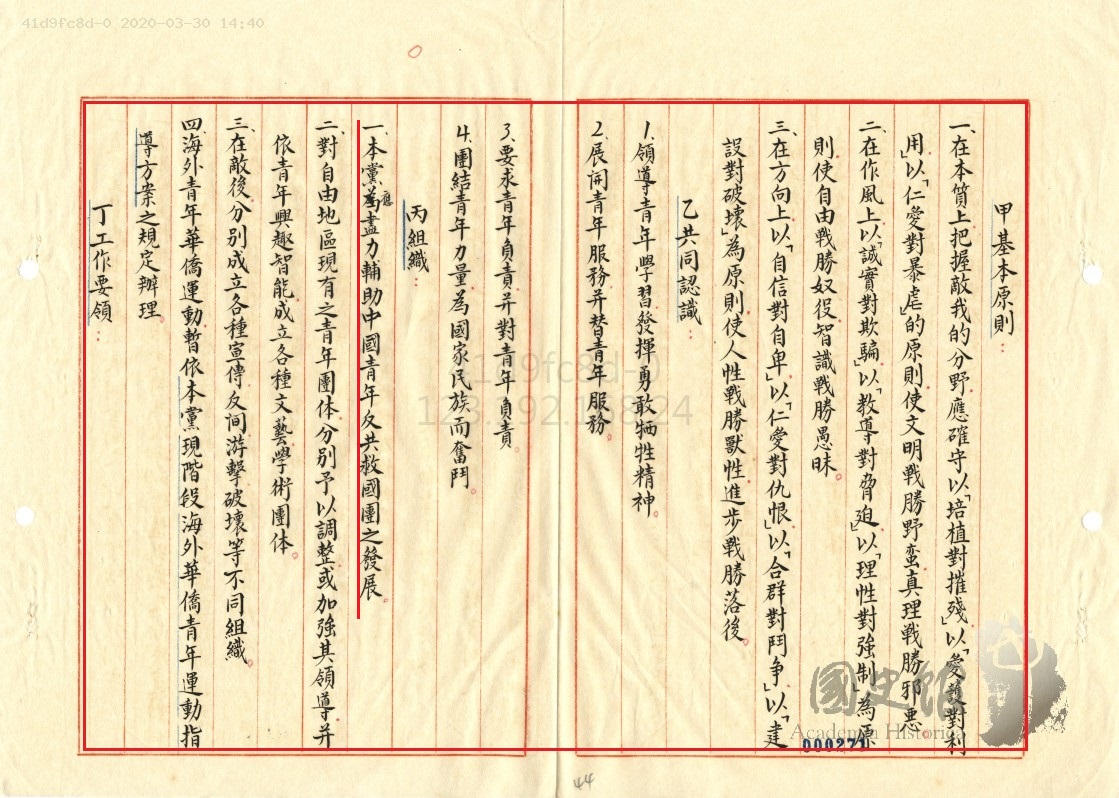 41d9fc8d-0 2020-03-30 14:40
甲基本原則：
一、在本質上把握敵我的分野應確守以「培植對摧殘」以「愛護對利
用」以「仁愛對暴虐」的原則使文明戰勝野蛮真理戰勝邪惡。
二、在作風上以「誠實對欺騙」以「教導對脅迫」以「理性對強制」為原
則使自由戰勝奴役智識戰勝愚昧
三、在方向上以「自信對自卑」以「仁愛對仇恨」以「合群對鬥争」以「建
設對破壞」為原則使人性戰勝獸性進步戰勝落後。
乙共同認識：
1.領導青年學習發揮勇敢牺牲精神。
2.展開青年服務并替青年服務。
3.要求青年負責并對青年負責。
4.團結青年力量為國家民族而奮鬥。
丙組織：
一、本黨應盡力輔助中國青年反共救國團之發展。
二、對自由地區現有之青年團体分別予以調整或加強其領導并
依青年興趣智能成立各種文藝學術團体。
三、在敵後分別成立各種宣傳反间游擊破壞等不同組織。
四、海外青年華僑運動暫依本黨現階段海外華僑青年運動指
導方案之規定辦理。
丁工作要領：
41d9fc8d-0
國史館
Academia Historica
000271
44